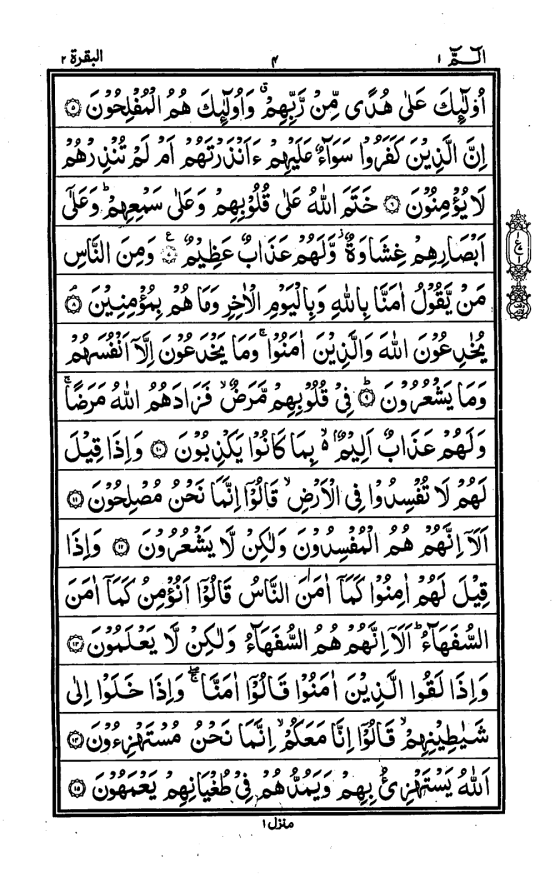 الٓمّٓ ١ ٤ البقرة ٢
اُولٰٓئِكَ عَلٰى هُدًى مِّنْ رَّبِّهِمْ ۗ وَاُولٰٓئِكَ هُمُ الْمُفْلِحُوْنَ ۝٥
اِنَّ الَّذِيْنَ كَفَرُوْا سَوَآءٌ عَلَيْهِمْ ءَاَنْذَرْتَهُمْ اَمْ لَمْ تُنْذِرْهُمْ
لَا يُؤْمِنُوْنَ ۝٦ خَتَمَ اللّٰهُ عَلٰى قُلُوْبِهِمْ وَعَلٰى سَمْعِهِمْ ؕ وَعَلٰٓى
اَبْصَارِهِمْ غِشَاوَةٌ ؗ وَّلَهُمْ عَذَابٌ عَظِيْمٌ ۝٧ ع وَمِنَ النَّاسِ
مَنْ يَّقُوْلُ اٰمَنَّا بِاللّٰهِ وَبِالْيَوْمِ الْاٰخِرِ وَمَا هُمْ بِمُؤْمِنِيْنَ ۝٨ ۘ
يُخٰدِعُوْنَ اللّٰهَ وَالَّذِيْنَ اٰمَنُوْا ۚ وَمَا يَخْدَعُوْنَ اِلَّآ اَنْفُسَهُمْ
وَمَا يَشْعُرُوْنَ ۝٩ ؕ فِيْ قُلُوْبِهِمْ مَّرَضٌ ۙ فَزَادَهُمُ اللّٰهُ مَرَضًا ۚ
وَلَهُمْ عَذَابٌ اَلِيْمٌ ۢ ۙ بِمَا كَانُوْا يَكْذِبُوْنَ ۝١٠ وَاِذَا قِيْلَ
لَهُمْ لَا تُفْسِدُوْا فِى الْاَرْضِ ۙ قَالُوْٓا اِنَّمَا نَحْنُ مُصْلِحُوْنَ ۝١١
اَلَآ اِنَّهُمْ هُمُ الْمُفْسِدُوْنَ وَلٰكِنْ لَّا يَشْعُرُوْنَ ۝١٢ وَاِذَا
قِيْلَ لَهُمْ اٰمِنُوْا كَمَآ اٰمَنَ النَّاسُ قَالُوْٓا اَنُؤْمِنُ كَمَآ اٰمَنَ
السُّفَهَآءُ ؕ اَلَآ اِنَّهُمْ هُمُ السُّفَهَآءُ وَلٰكِنْ لَّا يَعْلَمُوْنَ ۝١٣
وَاِذَا لَقُوا الَّذِيْنَ اٰمَنُوْا قَالُوْٓا اٰمَنَّا ۖۚ وَاِذَا خَلَوْا اِلٰى
شَيٰطِيْنِهِمْ ۙ قَالُوْٓا اِنَّا مَعَكُمْ ۙ اِنَّمَا نَحْنُ مُسْتَهْزِءُوْنَ ۝١٤
اَللّٰهُ يَسْتَهْزِئُ بِهِمْ وَيَمُدُّهُمْ فِيْ طُغْيَانِهِمْ يَعْمَهُوْنَ ۝١٥
منزل ١